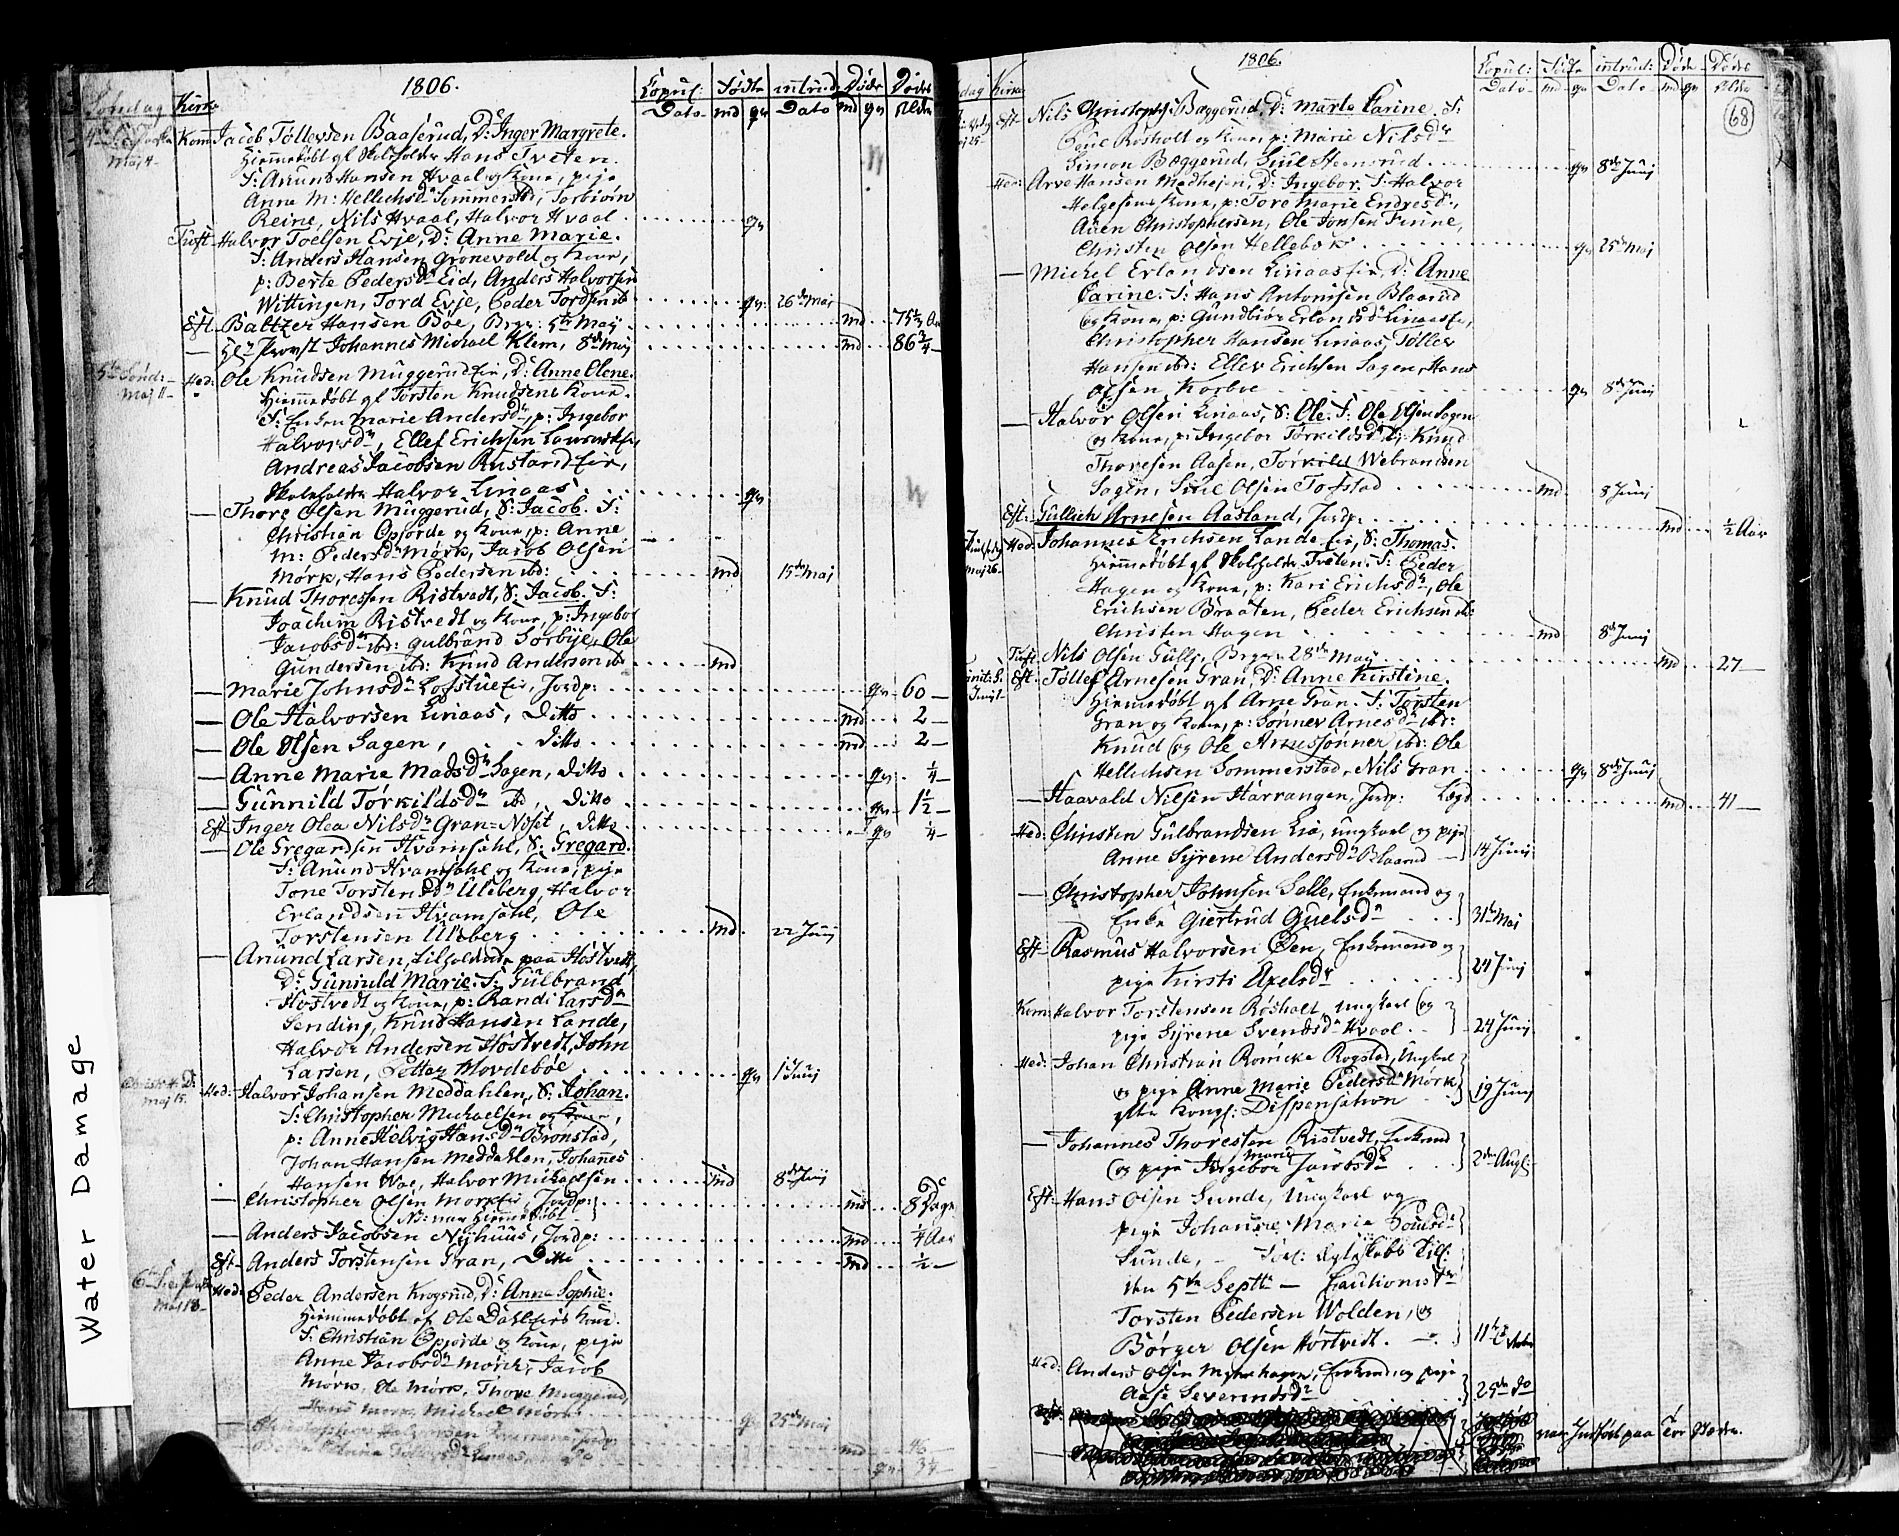 Water Damage
1806.
Søndag Kirke
Copul: Dato
Fødte md qv
introd Dato
Døde md qv
Dødes Alder
Maj 4
Kom Jacob Tollevsen Baaserud, D: Inger Margrete.
Hiemmedøbt af Skoleholder Hans Tveten.
F: Anund Hansen Hvaal og Kone, pige
Anne M: Hellichsdr Sommerstd, Torbiørn
Reine, Nils Hvaal, Halvor Hvaal qv
Tuft Halvor Toelsen Evje, D: Anne Marie.
F: Anders Hansen Grønevold og Kone,
p: Berte Pedersdr Eid, Anders Halvorsen
Wittingen, Tord Evje, Peder Tordsen ibd qv 26de Maj
Eft. Baltzer Hansen Bøe, Begr: 5te Maj md 75 1/2 Aar
Hr Provst Johannes Michael Klem, 8de Maj md 86 3/4
5te Sønd:
Maj 11
Hed: Ole Knudsen Muggerud eie, D: Anne Olene.
Hiemmedøbt af Torsten Knudsens Kone.
F: Enken Marie Andersdr, p: Ingebor
Halvorsdr, Ellef Erichsen
Andreas Jacobsen Rustand eie,
Skoleholder Halvor Linaas. qv
Thore Olsen Muggerud, S: Jacob. F:
Christian Opsorde og Kone, p: Anne
M: Pedersdr Mørk, Jacob Olsen
Mørk, Hans Pedersen ibd: md 15de Maj
Knud Thoresen Ristvedt, S: Jacob. F:
Joachim Ristvedt og Kone, p: Ingebor
Jacobsdr ibd: Gulbrand Sorbye, Ole
Gundersen ibd: Knud Andersen ibd md
Marie Johnsdr Lofstue eie, Jordp: qv 60
Ole Halvorsen Linaas, Ditto md 2
Ole Olsen Sagen, Ditto md 2
Anne Marie Madsdr Sagen, Ditto qv 1/4
Gunnild Torkildsdr ibd, Ditto qv 1 1/2
Eft Inger Olea Nilsdr Gran-Noset, Ditto qv 1/4
Ole Gregardsen Hvamsahl, S: Gregard.
F: Anund Hvamsahl og Kone, pige
Tone Torstensdr Ulsberg, Halvor
Erlandsen Hvamsahl, Ole
Torstensen Ulsberg md 22 Junj
Anund Larsen, Tilholdende paa Hostvedt,
D: Gunnild Marie. F: Gulbrand
Hostvedt og Kone, p: Randi Larsdr
Sending, Knud Hansen Lande,
Halvor Andersen Hostvedt, John
Larsen, Petter Movdebøe qv 1 Junj
Christi H. D:
Maj 15.
Hed: Halvor Johansen Meddahlen, S: Johan.
F: Christopher Michaelsen og Kone,
p: Anne Helvig Hansdr Brønstad,
Johan Hansen Meddahlen, Johannes
Hansen Moe, Halvor Michaelsen md 8de Junj
Christopher Olsen Mørk eie, Jordp: md 8 Dage
NB: var Hiemmedøbt
Anders Jacobsen Nyhuus, Jordp: md 1/4 Aar
Eft. Anders Torstensen Gran, Ditto md 1/2
Maj 18
Hed: Peder Andersen Krogsrud, D: Anne Sophie.
Hiemmedøbt af Ole Dahl eies Kone.
F: Christian Opsorde og Kone, pige
Anne Jacobsdr Mørk, Jacob
Mørk, Ole Mørk, Thore Muggerud,
Hans Mørk, Michael Mørk qv 25de Maj
Christopher Halvorsen
md
qv 3 1/4
1806.
68
Kirke
Copul: Dato
Fødte md qv
introd: Dato
Døde md qv
Dødes Alder
Maj 25.
Eft. Nils Christophs: Bæggerud, D: Marte Carine. F:
Poul Røsholt og Kone, p: Marie Nilsdr
Simon Bæggerud, Siul Steensrud qv 8de Junj
Hed: Arve Hansen Medhejen, D: Ingebor. F: Halvor
Helgesens Kone, p: Tore Marie Endresdr,
Auen Christophersen, Ole Jonsen Finne,
Christen Olsen Hellebek qv 25de Maj
Michel Erlandsen Linaas eie, D: Anne
Carine. F: Hans Antonisen Blaarud
og Kone, p: Gundbiør Erlandsdr Linaas eie,
Christopher Hansen Linaas, Tollev
Hansen ibd: Ellev Erichsen Sagen, Hans
Olsen Korboe qv 8de Junj
Halvor Olsen Linaas, S: Ole. F: Ole Olsen Sagen
og Kone, p: Ingebor Torkildsdr ib: Knud
Thoresen Aasen, Torkild Webrandsen
Sagen, Siul Olsen Tofstad md 8 Junj
Eft: Gullich Arnesen Aasland, Jordp: md 1/2 Aar
Maj 26.
Hed: Johannes Erichsen Lande eie, S: Thomas.
Hiemmedøbt af Skoleholder Tveten. F: Peder
Hagen og Kone, p: Kari Erichsdr, Ole
Erichsen Braaten, Peder Erichsen ib:
Christen Hagen md 8de Junj
Tuft Nils Olsen Gullj, Begr: 28de Maj md 27
Junj 1
Eft: Tollef Arnesen Gran, D: Anne Kirstine.
Hiemmedøbt af Arne Gran. F: Torsten
Gran og Kone, p: Sønnev Arnesdr ibd:
Knud og Ole Arnessønner ibd: Ole
Hellichsen Sommerstad, Nils Gran qv 8de Junj
Haavald Nilsen Harrangen, Jordp: Lægd md 41
Hed: Christen Gulbrandsen Lia, Ungkarl og pige
Anne Syrene Andersdr Blaarud 14 Junj
Christopher Johnsen Selle, Enkemand og
Enke Giertrud Guelsdr 31te Maj
Eft: Rasmus Halvorsen Øen, Enkemand og
pige Kirsti Axelsdr 24 Junj
Kom Halvor Torstensen Røsholt, Ungkarl og
pige Syrene Svendsdr Hvaal 24 Junj
Hed: Johan Christian Romcke Rogstad, Ungkarl
og pige Anne Marie Pedersdr Mørk
efter Kongl: Dispensation 19 Junj
Johannes Thoresen Ristvedt, Enkemd
og pige Ingebor Marie Jacobsdr 2den Augl:
Eft: Hans Olsen Sunde, Ungkarl og
pige Johanne Maria Poulsdr
Sunde,
den 5te Septbr Cautionister
Torsten Pedersen Wolden, og
Børger Olsen Hortvedt. 11te
Hed: Anders Olsen Myhrehagen, Enkemd og pige
Aase Severindsdr 25de do
var Indført paa